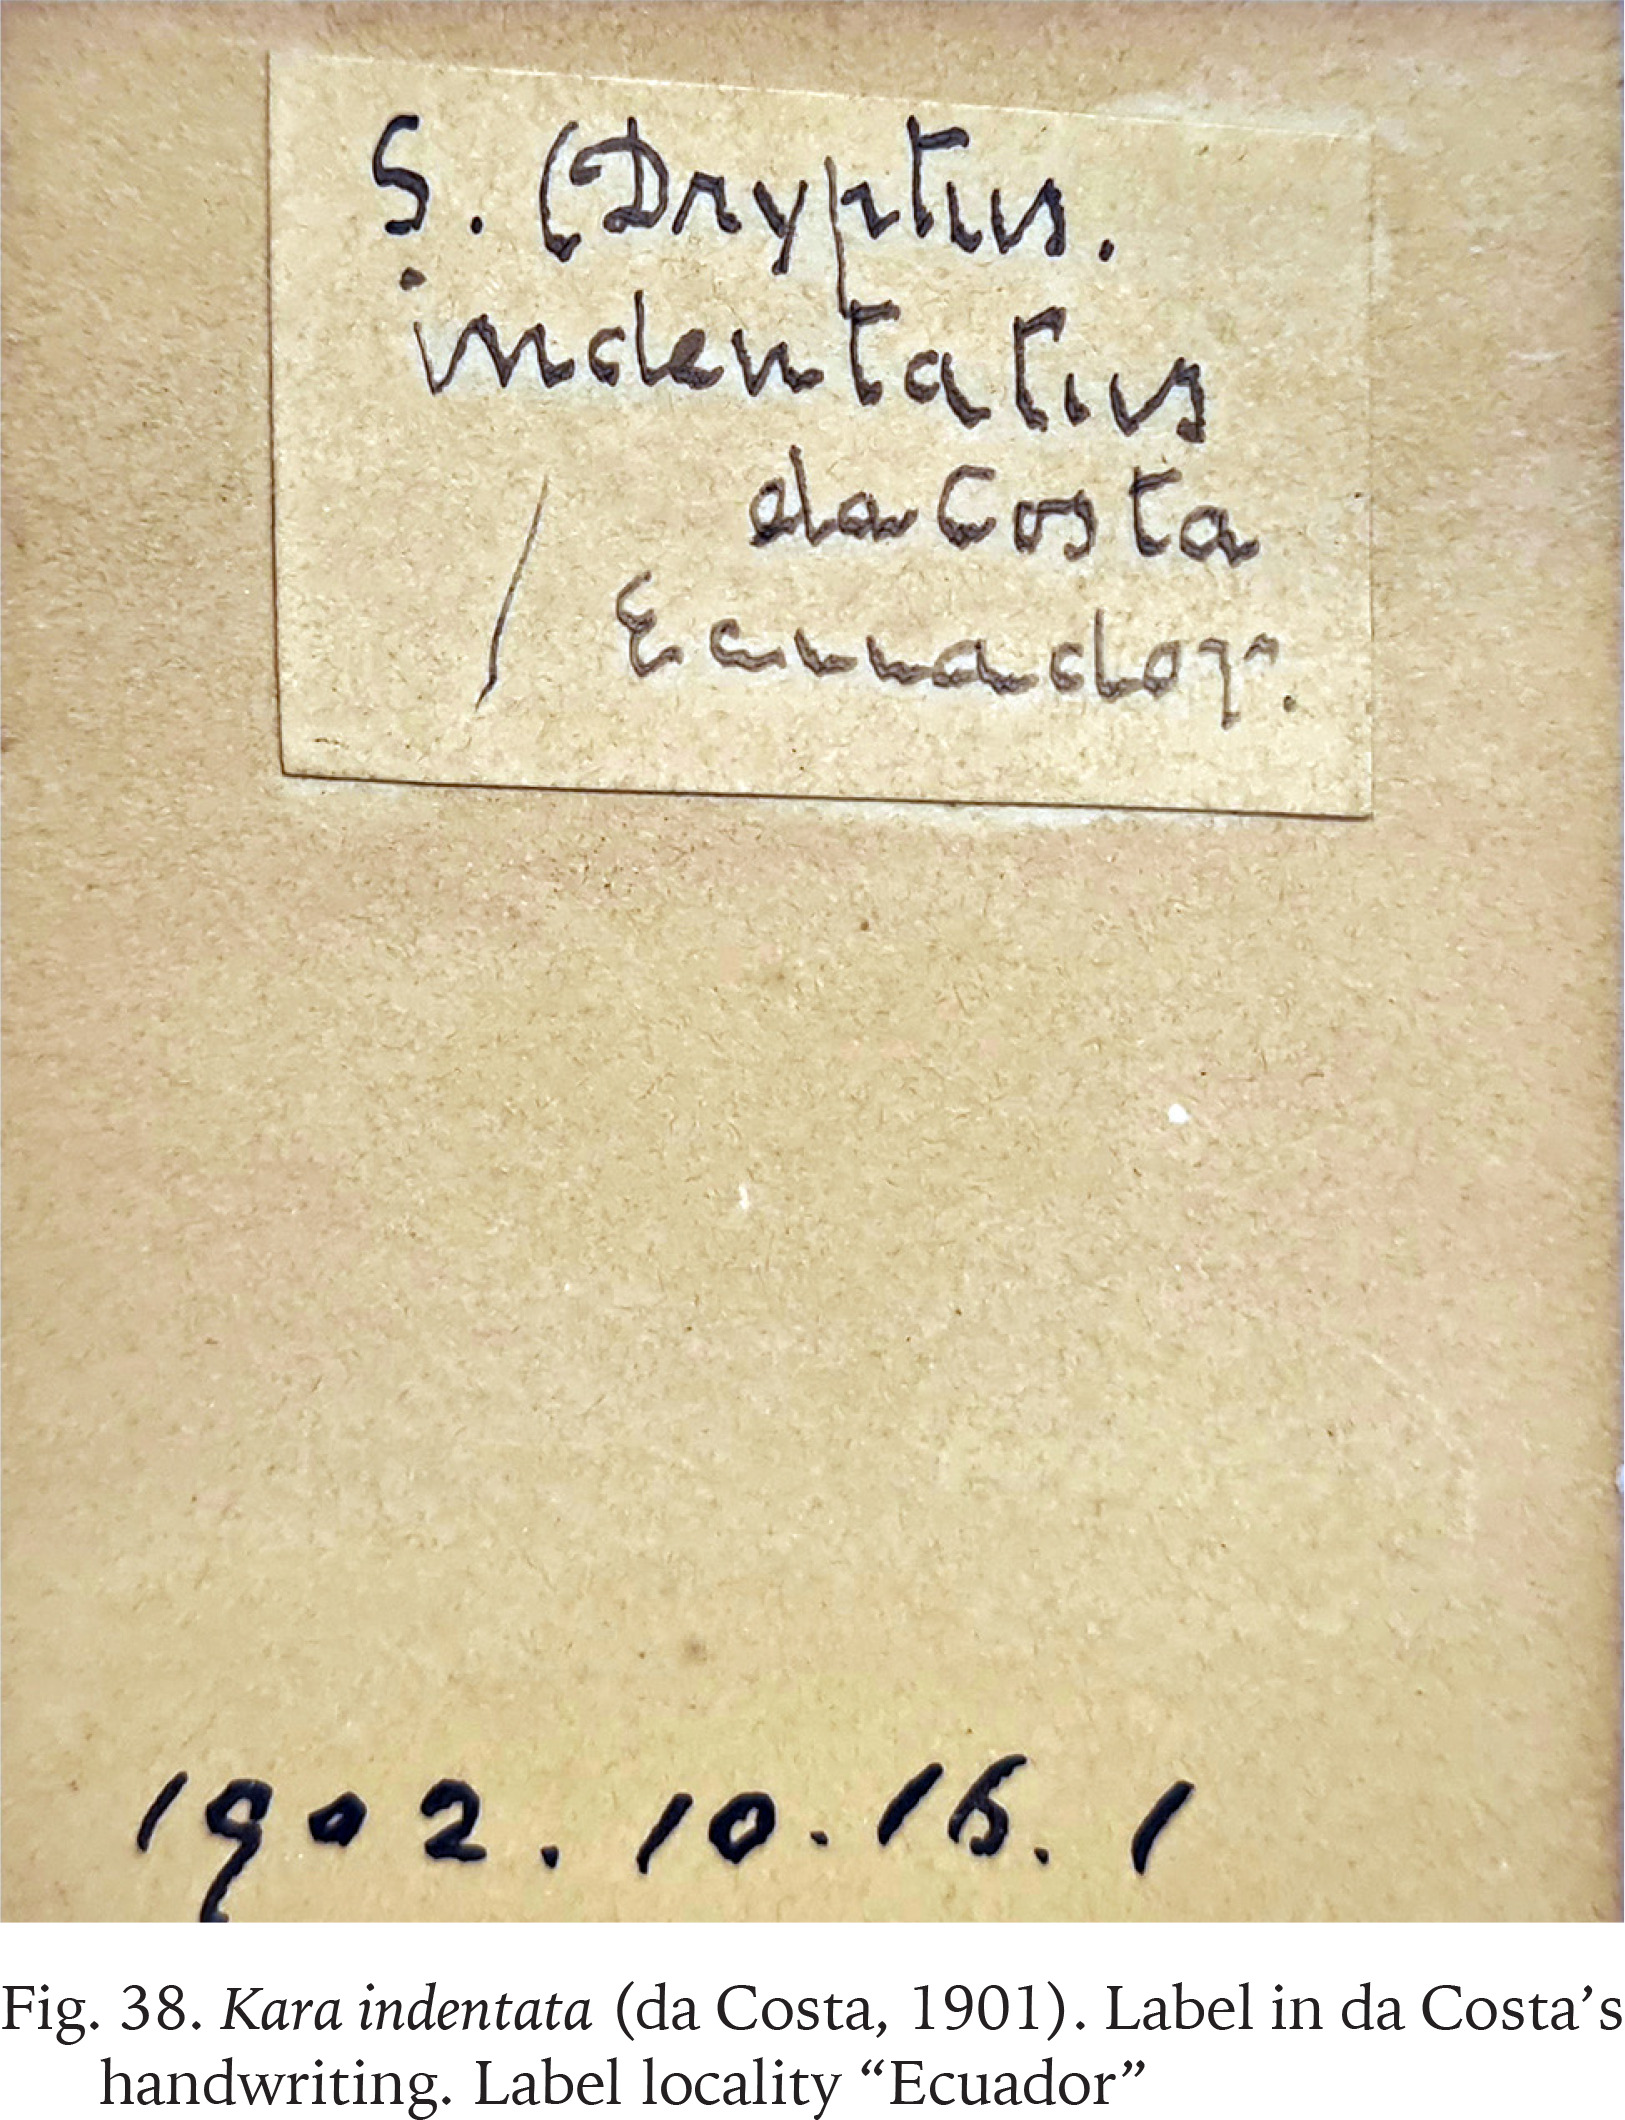 S. (Dryptus.
indentatus
da Costa
/ Ecuador.
1902.10.16.1
Fig. 38. Kara indentata (da Costa, 1901). Label in da Costa’s
handwriting. Label locality “Ecuador”